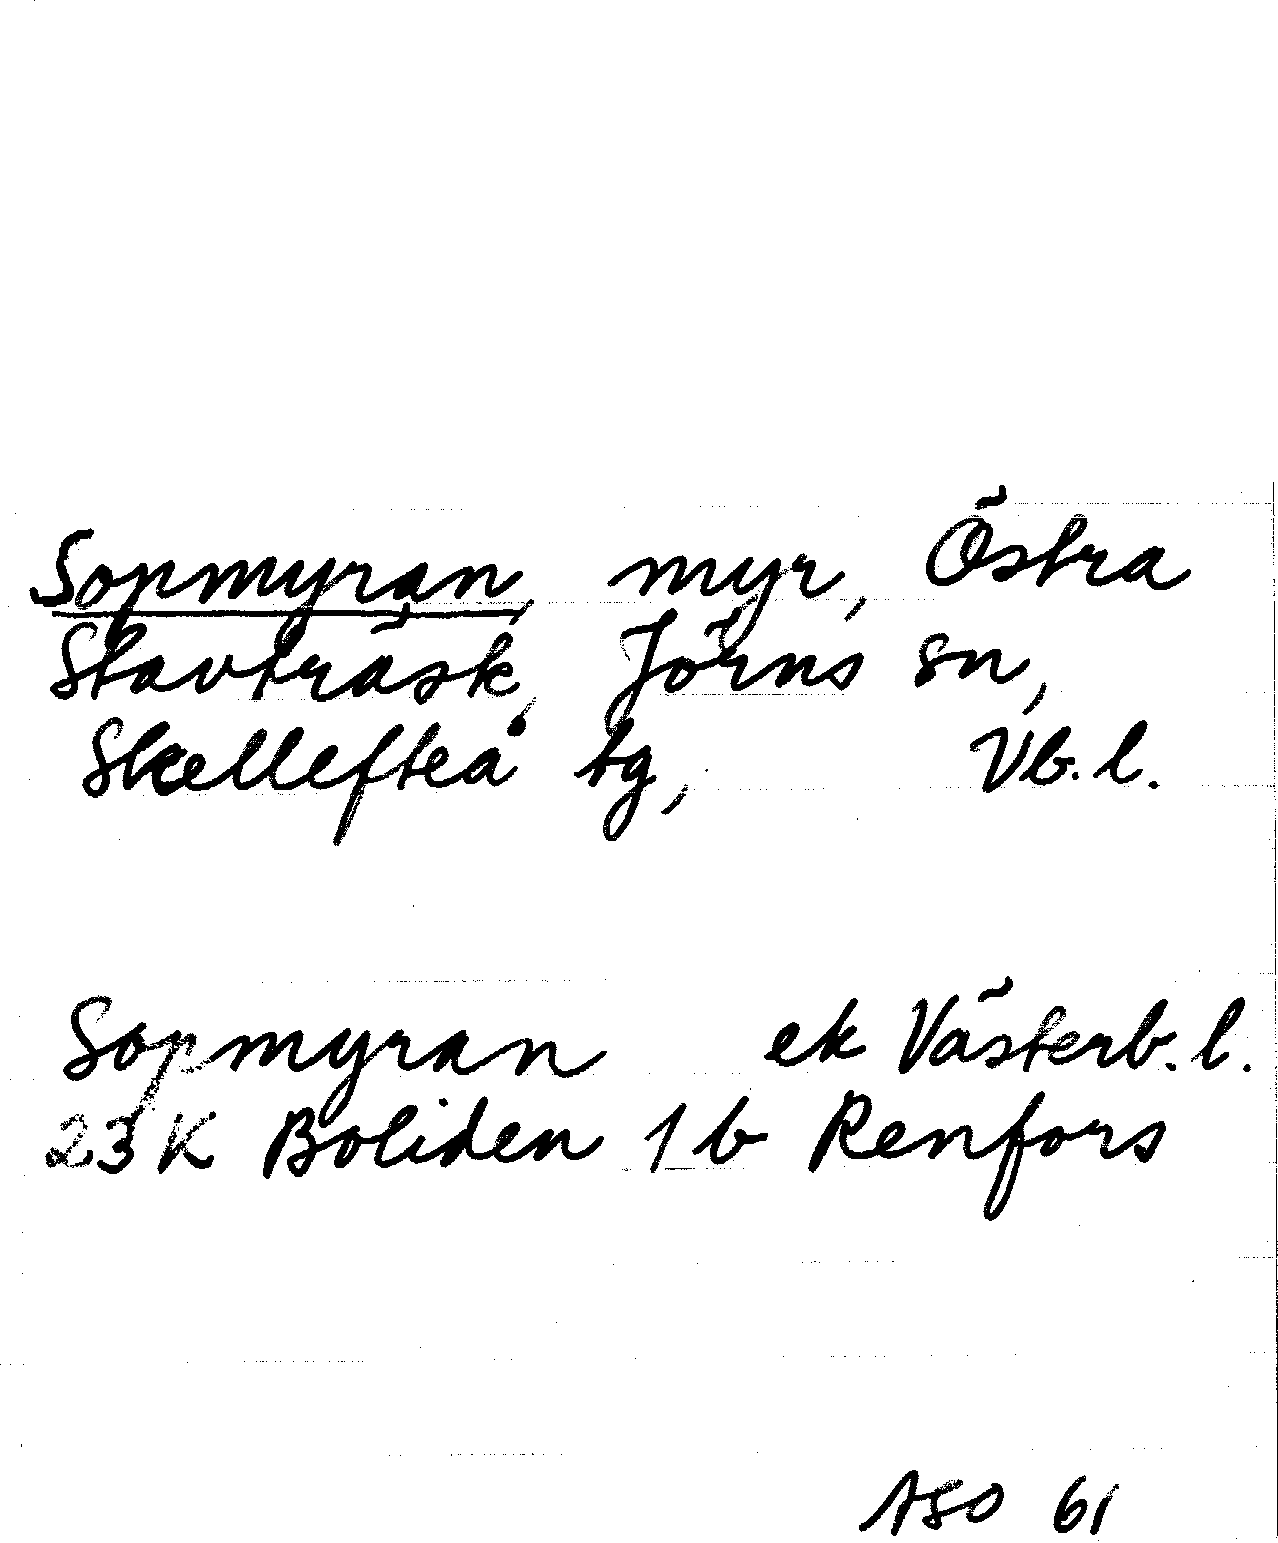 Sopmyran, myr, Östra
Stavträsk, Jörns sn,
Skellefteå tg, Vb. l.
Sopmyran ek Västerb. l.
23 K Boliden 1 b Renfors
ASO 61